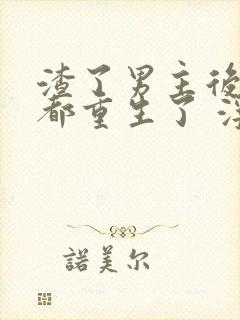 渣了男主後
都重生了
諾美尔